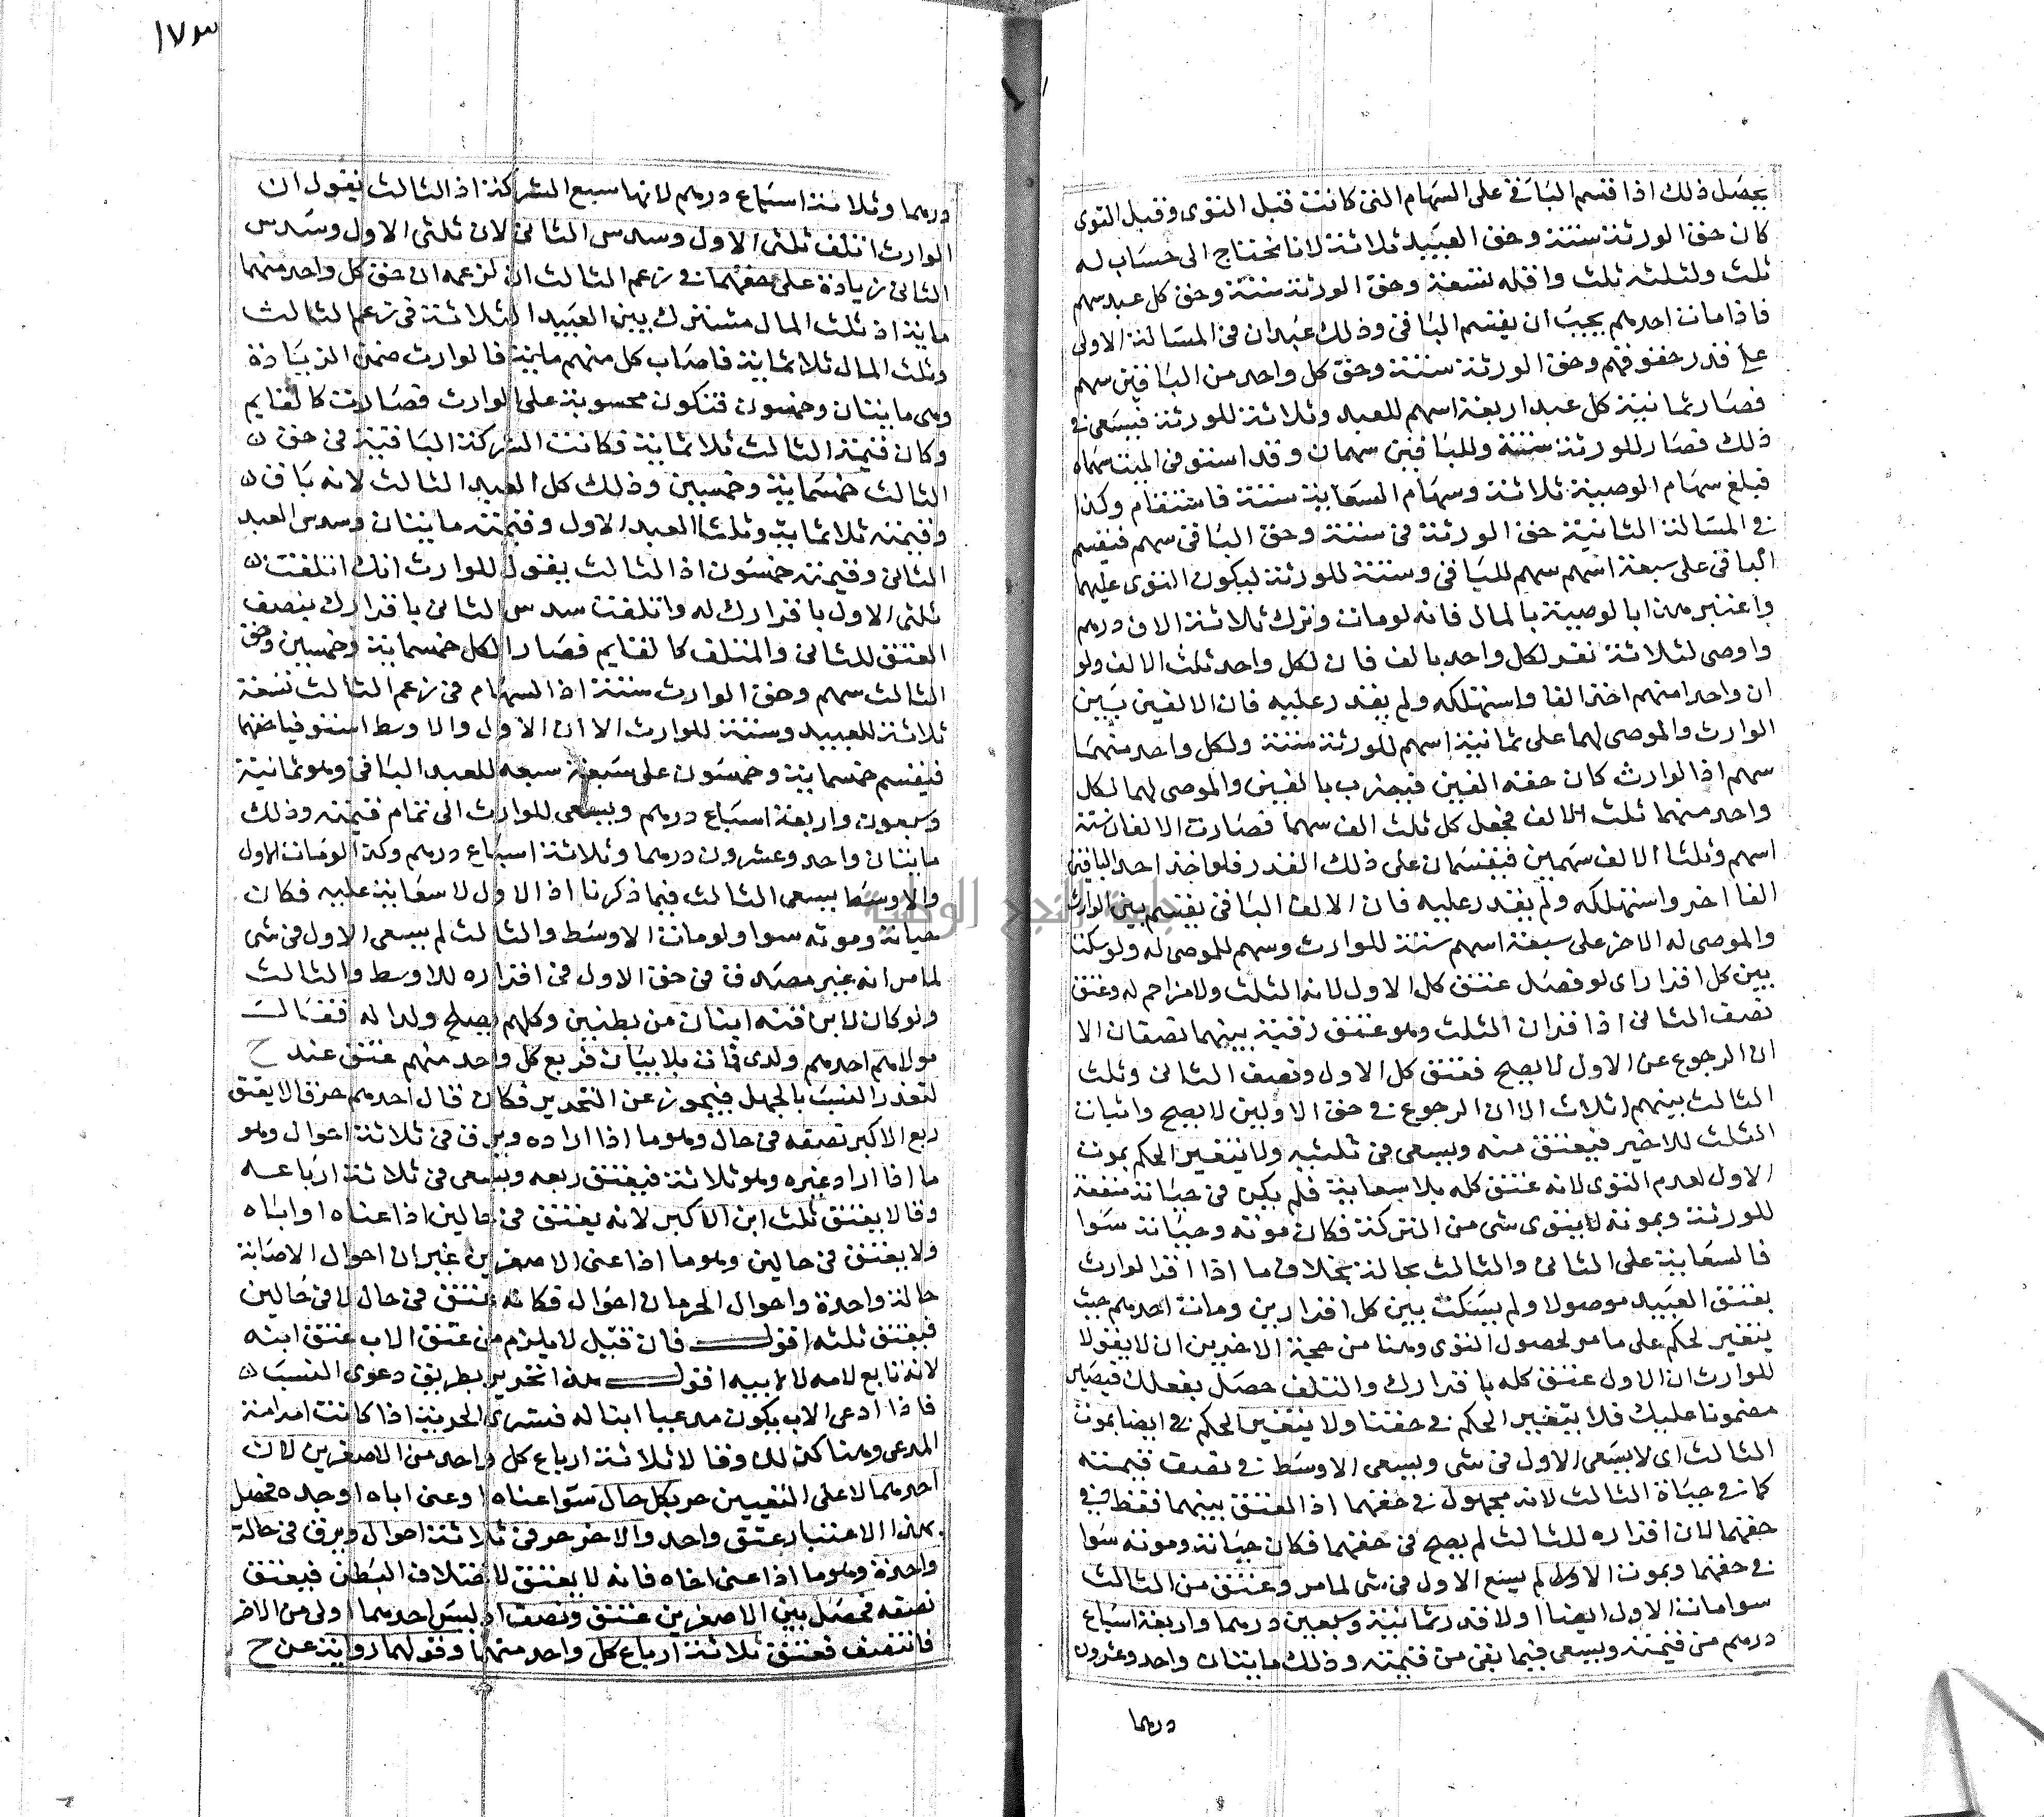 يحصل ذلك اذا قسم الباقي على السهام التي كانت قبل التوى وقبل التوى
كان حق الورثة ستة وحق العبيد ثلاثة لانا نحتاج الى حساب له
ثلث ولثلثه ثلث واقله تسعة وحق الورثة ستة وحق كل عبد سهم
فاذا مات احدهم يجب ان يقسم الباقي وذلك عبدان في المسالة الاولى
على قدر حقوقهم وحق الورثة ستة وحق كل واحد من الباقين سهم
فصار ثمانية كل عبد اربعة اسهم للعبد وثلاثة للورثة فيسعى في
ذلك فصار للورثة ستة وللباقين سهمان وقد استوفى الميت سهاه
فبلغ سهام الوصية ثلاثة وسهام السعاية ستة فاستقام وكذا
في المسالة الثانية حق الورثة في ستة وحق الباقي سهم فيقسم
الباقي على سبعة اسهم سهم للباقي وستة للورثة ليكون التوى عليهما
واعتبر هذا بالوصية بالمال فانه لو مات وترك ثلاثة الاف درهم
واوصى لثلاثة نفر لكل واحد بالف فان لكل واحد ثلث الالف ولو
ان واحدا منهم اخذ الفا واستهلكه ولم يقدر عليه فان الالفين بين
الوارث والموصى لهما على ثمانية اسهم للورثة ستة ولكل واحد منهما
سهم اذ الوارث كان حقه الفين فيضرب بالفين والموصى لهما لكل
واحد منهما ثلث الالف فجعل كل ثلث الف سهما فصارت الالفان ستة
اسهم وثلثا الالف سهمين فيقسمان على ذلك القدر فلو اخذ احد الباقين
الفا اخر واستهلكه ولم يقدر عليه فان الالف الباقي يقسم بين الوارث
والموصى له الاخر على سبعة اسهم ستة للوارث وسهم للموصى له ولو سكت
بين كل اقرار اى لو فصل عتق كل الاول لانه الثلث ولا مزاحم له وعتق
نصف الثاني اذا اقر ان الثلث وهو عتق رقبة بينهما نصفان الا
ان الرجوع عن الاول لا يصح فعتق كل الاول ونصف الثاني وثلث
الثالث بينهم اثلاث الا ان الرجوع في حق الاولين لا يصح واثبات
الثلث للاخير فيعتق منه ويسعى في ثلثيه ولا يتغير الحكم بموت
الاول لعدم التوى لانه عتق كله بلا سعاية فلم يكن في حياته منفعة
للورثة وبموته لا يتوى شي من التركة فكان موته وحياته سوا
فالسعاية على الثاني والثالث بحالة بخلاف ما اذا اقر الوارث
بعتق العبيد موصولا ولم يسكت بين كل اقرارين ومات احدهم حيث
يتغير الحكم على ما مر لحصول التوى وهنا من حجة الاخيرين ان لا يقولا
للوارث ان الاول عتق كله باقرارك والتلف حصل بفعلك فيصير
مضمونا عليك فلا يتغير الحكم في حقنا ولا يتغير الحكم في ايضا بموت
الثالث اى لا يسعى الاول في شي ويسعى الاوسط في نصف قيمته
كما في حياة الثالث لانه مجهول في حقهما اذ العتق بينهما فقط في
حقهما لان اقراره للثالث لم يصح في حقهما فكان حياته وموته سوا
في حقهما وبموت الاول لم يسع الاول في شي لما مر وعتق من الثالث
سوا مات الاول ايضا اولا قدر ثمانية وسبعين درهما واربعة اسباع
درهم من قيمته ويسعى فيما بقى من قيمته وذلك مايتان واحد وعشرون
درهما
١٧٣
درهما وثلاثة اسباع درهم لانها سبع التركة اذ الثالث يقول ان
الوارث اتلف ثلثى الاول وسدس الثاني لان ثلثى الاول وسدس
الثاني زيادة على حقهما في زعم الثالث ان لزعمه ان حق كل واحد منهما
ماية اذ ثلث المال مشترك بين العبيد الثلاثة في زعم الثالث
وثلث المال ثلاثماية فاصاب كل منهم ماية فالوارث ضمن الزيادة
وهي مايتان وخمسون فتكون محسوبة على الوارث فصارت كالقايم
وكان قيمة الثالث ثلاثماية فكانت التركة الباقية في حق
الثالث خمسماية وخمسين وذلك كل العبد الثالث لانه باق
وقيمته ثلاثماية وثلثا العبد الاول وقيمته مايتان وسدس العبد
الثاني وقيمته خمسون اذ الثالث يقول للوارث انك اتلفت
ثلثى الاول باقرارك له واتلفت سدس الثاني باقرارك بنصف
العتق للثاني والمتلف كالقايم فصار الكل خمسماية وخمسين وحق
الثالث سهم وحق الوارث ستة اذ السهام في زعم الثالث تسعة
ثلاثة للعبيد وستة للوارث الا ان الاول والاوسط استوفيا حقهما
فيقسم خمسماية وخمسون على سبعة سبعه للعبد الباقي وهو ثمانية
وسبعون واربعة اسباع درهم ويسعى للوارث الى تمام قيمته وذلك
مايتان واحد وعشرون درهما وثلاثة اسباع درهم وكذا لو مات الاول
والاوسط يسعى الثالث فيما ذكرنا اذ الاول لا سعاية عليه فكان
حياته وموته سوا ولو مات الاوسط والثالث لم يسعى الاول في شي
لما مر انه غير مصدق في حق الاول في اقراره للاوسط والثالث
ولو كان لابن قنه ابنان من بطنين وكلهم يصلح ولدا له فقال
مولاهم احدهم ولدى فمات بلا بيان فربع كل واحد منهم عتق عند ح
لتعذر النسب بالجهل فيجوز عن التحرير فكان قال احدهم حر قالا يعتق
ربع الاكبر نصفه في حال وهو ما اذا اراده ويرق في ثلاثة احوال وهو
ما اذا اراد غيره وهو ثلاثة فيعتق ربعه ويسعى في ثلاثة ارباعه
وقالا يعتق ثلث ابن الاكبر لانه يعتق في حالين اذا عناه او اباه
ولا يعتق في حالين وهو ما اذا عنى الاصغرين غير ان احوال الاصابة
حالة واحدة واحوال الحرمان احوال فكانه عتق في حال لا في حالين
فيعتق ثلثه اقول فان قيل لا يلزم من عتق الاب عتق ابنه
لانه تابع لامه لا لابيه اقول هذا تحرير بطريق دعوى النسب
فاذا ادعى الاب يكون مدعيا ابنا له فتسرى الحرية اذا كانت امه امة
المدعى وهنا كذلك وقالا ثلاثة ارباع كل واحد من الاصغرين لان
احدهما لا على التعيين حر بكل حال سوا عناه او عنى اباه او جده فحصل
بهذا الاعتبار عتق واحد والاخر حر في ثلاثة احوال ويرق في حالة
واحدة وهو ما اذا عنى اخاه فانه لا يعتق لاختلاف البطن فيعتق
نصفه فحصل بين الاصغرين عتق ونصف اذ ليس احدهما اولى من الاخر
فانتصف فعتق ثلاثة ارباع كل واحد منهما وقولهما رواية عن ح
جامعة النجاح الوطنية